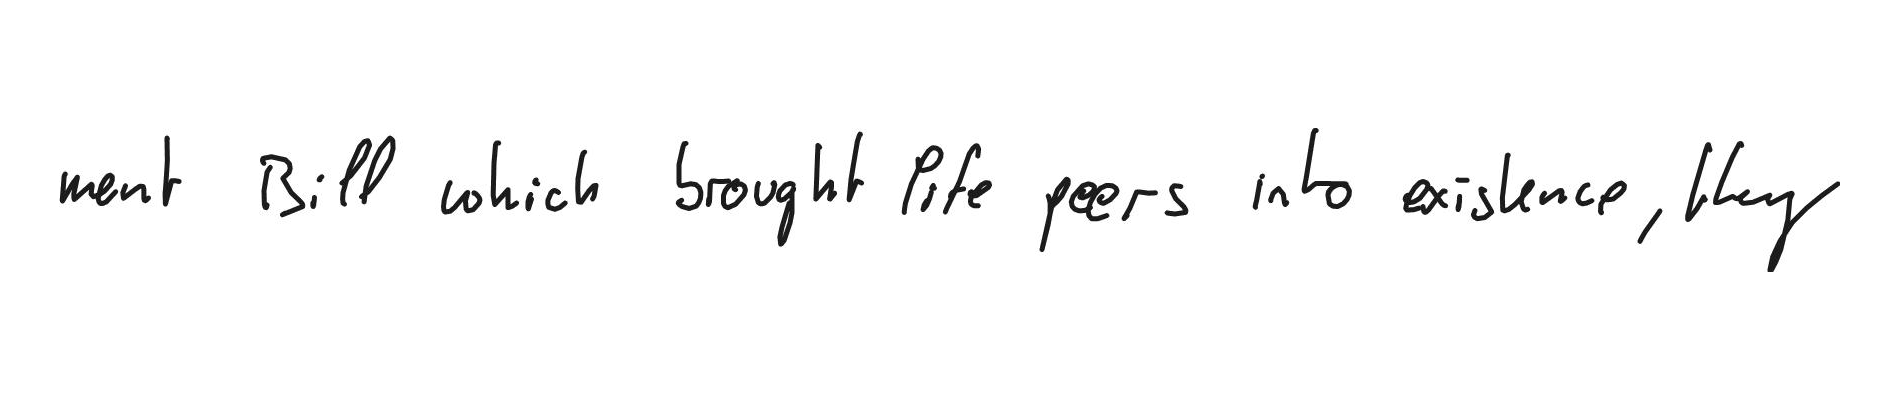 ment Bill which brought life peers into existence, they